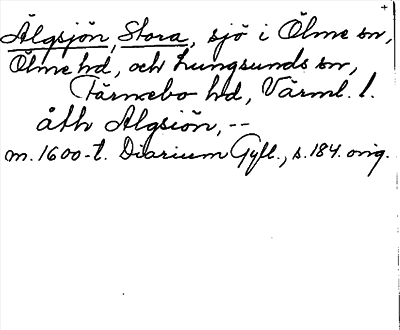 Älgsjön, Stora, sjö i Ölme sn,
Ölme hd, och Lungsunds sn,
Färnebo hd, Värml. l.
åth Algsiön, --
m. 1600-t. Diarium Gyll., s. 184. orig.